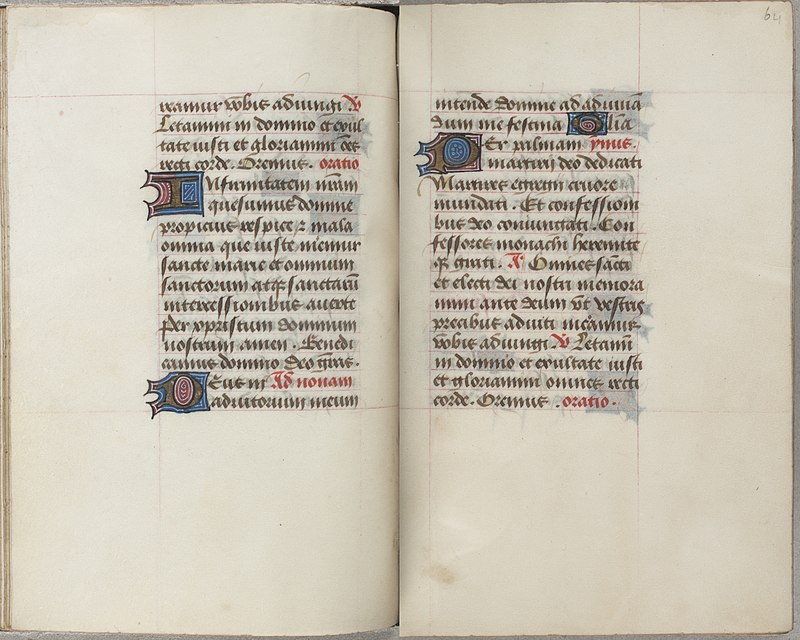 reamur vobis adiungi ℣
Letamini in domino et exul
tate iusti et gloriamini oēs
recti corde. Oremus. oratio
Infirmitatem nr̄am
quesumus domine
propicius respice ⁊ mala
omnia que iuste meremur
sancte marie et omnium
sanctorum atq̄ꝫ sanctarū
intercessionibus auerte
Per xp̄ristum dominum
nostrum amen. Benedi
camus domino Deo grās.
Deus in Ad nonam
adiutorium meum
64
intende Domine ad adiuuā
dum me festina Gloria
Per palmam ymus.
martirii deo dedicati
Martires egregii cruore
mundati. Et confession
bus deo coniungati. Con
fessores monachi heremite
qꝫ grati. Añ Omnes sancti
et electi dei nostri memora
mini ante deum vt vestris
precibus adiuti mereamur
vobis adiungi ℣ Letamī
in domino et exultate iusti
et gloriamini omnes recti
corde. Oremus. oratio.